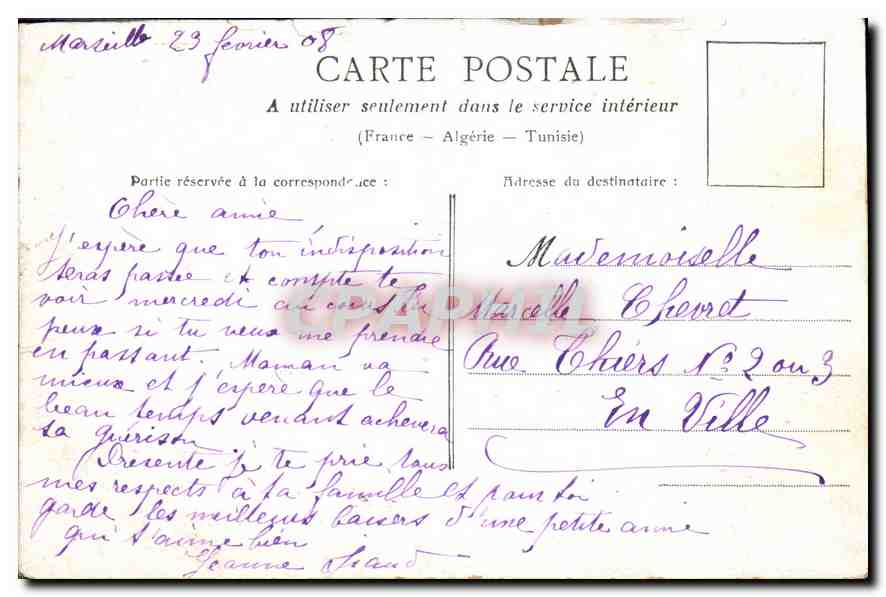 Marseille 23 février 08
CARTE POSTALE
A utiliser seulement dans le service intérieur
(France — Algérie — Tunisie)
Partie réservée à la correspondance :
Adresse du destinataire :
Chère amie
J'espère que ton indisposition
seras passée et compte te
voir mercredi au cours tu
peux si tu veux me prendre
en passant. Maman va
mieux et j'espère que le
beau temps venant achevera
sa guérison
Présente je te prie tous
mes respects à ta famille et pour toi
garde les meilleurs baisers d'une petite amie
qui t'aime bien
Jeanne
Mademoiselle
Marcelle Chevret
Rue Thiers No 2 ou 3
En Ville
CPAPHIL